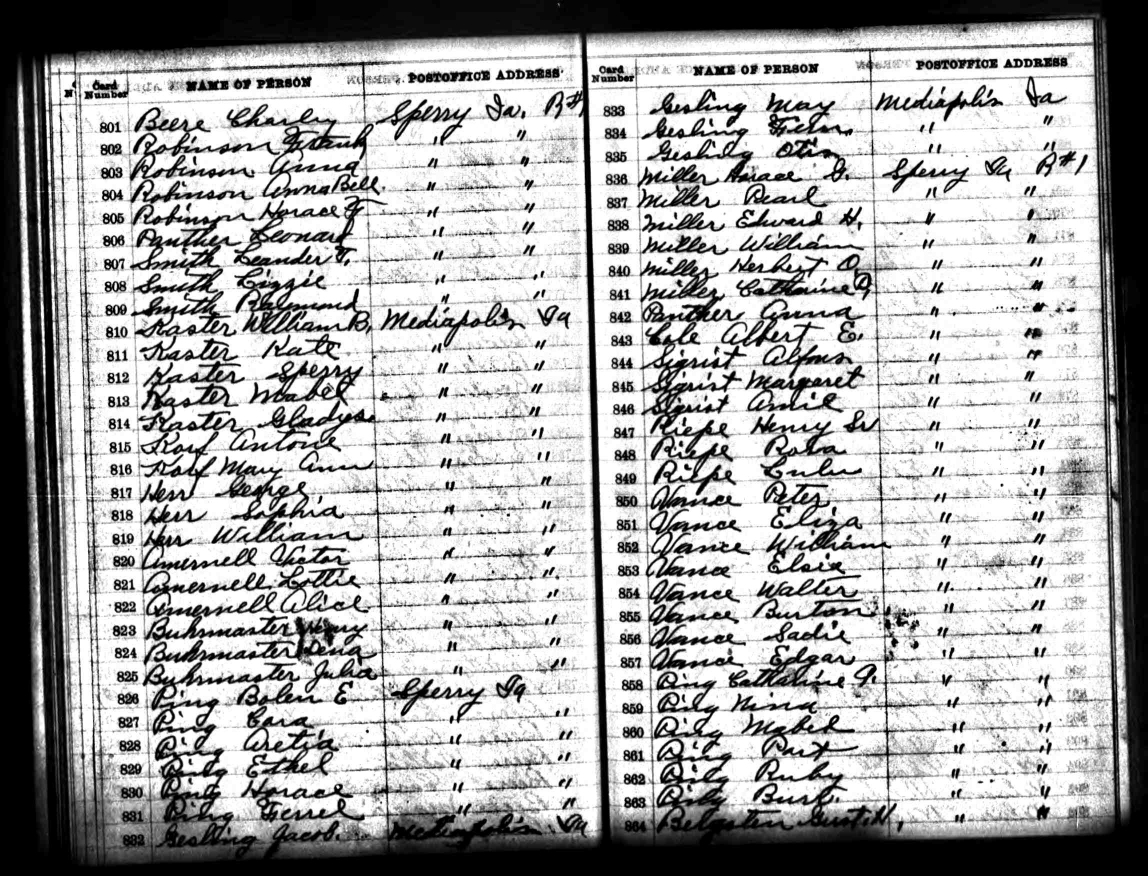 Card Number NAME OF PERSON POSTOFFICE ADDRESS
801 Beere Charley Sperry Ia. R#1
802 Robinson Frank " "
803 Robinson Anna " "
804 Robinson Anna Bell " "
805 Robinson Horace F " "
806 Panther Leonard " "
807 Smith Leander T. " "
808 Smith Lizzie " "
809 Smith Raymond " "
810 Kaster William B. Mediapolis Ia
811 Kaster Kate " "
812 Kaster Sperry " "
813 Kaster Mabel " "
814 Kaster Gladys " "
815 Korf Antone " "
816 Korf Mary Ann " "
817 Herr George " "
818 Herr Sophia " "
819 Herr William " "
820 Amernell Victor " "
821 Amernell Lottie " "
822 Amernell Alice " "
823 Buhrmaster Henry " "
824 Buhrmaster Lena " "
825 Buhrmaster Julia " "
826 Ping Bolen E Sperry Ia
827 Ping Cora " "
828 Ping Aretia " "
829 Ping Ethel " "
830 Ping Horace " "
831 Ping Ferrel " "
832 Gesling Jacob. Mediapolis Ia
Card Number NAME OF PERSON POSTOFFICE ADDRESS
833 Gesling May Mediapolis Ia
834 Gesling Fern " "
835 Gesling Otis " "
836 Miller Horace G. Sperry Ia R#1
837 Miller Pearl " "
838 Miller Edward H. " "
839 Miller William " "
840 Miller Herbert O " "
841 Miller Catharine " "
842 Panther Anna " "
843 Cole Albert E. " "
844 Sigrist Alfons " "
845 Sigrist Margaret " "
846 Sigrist Amil " "
847 Riepe Henry Sr " "
848 Riepe Rosa " "
849 Riepe Lulu " "
850 Vance Peter " "
851 Vance Eliza " "
852 Vance William " "
853 Vance Elsie " "
854 Vance Walter " "
855 Vance Burton " "
856 Vance Sadie " "
857 Vance Edgar " "
858 Ping Catharine " "
859 Ping Nina " "
860 Ping Mabel " "
861 Ping Part " "
862 Ping Ruby " "
863 Ping Burl " "
864 " "